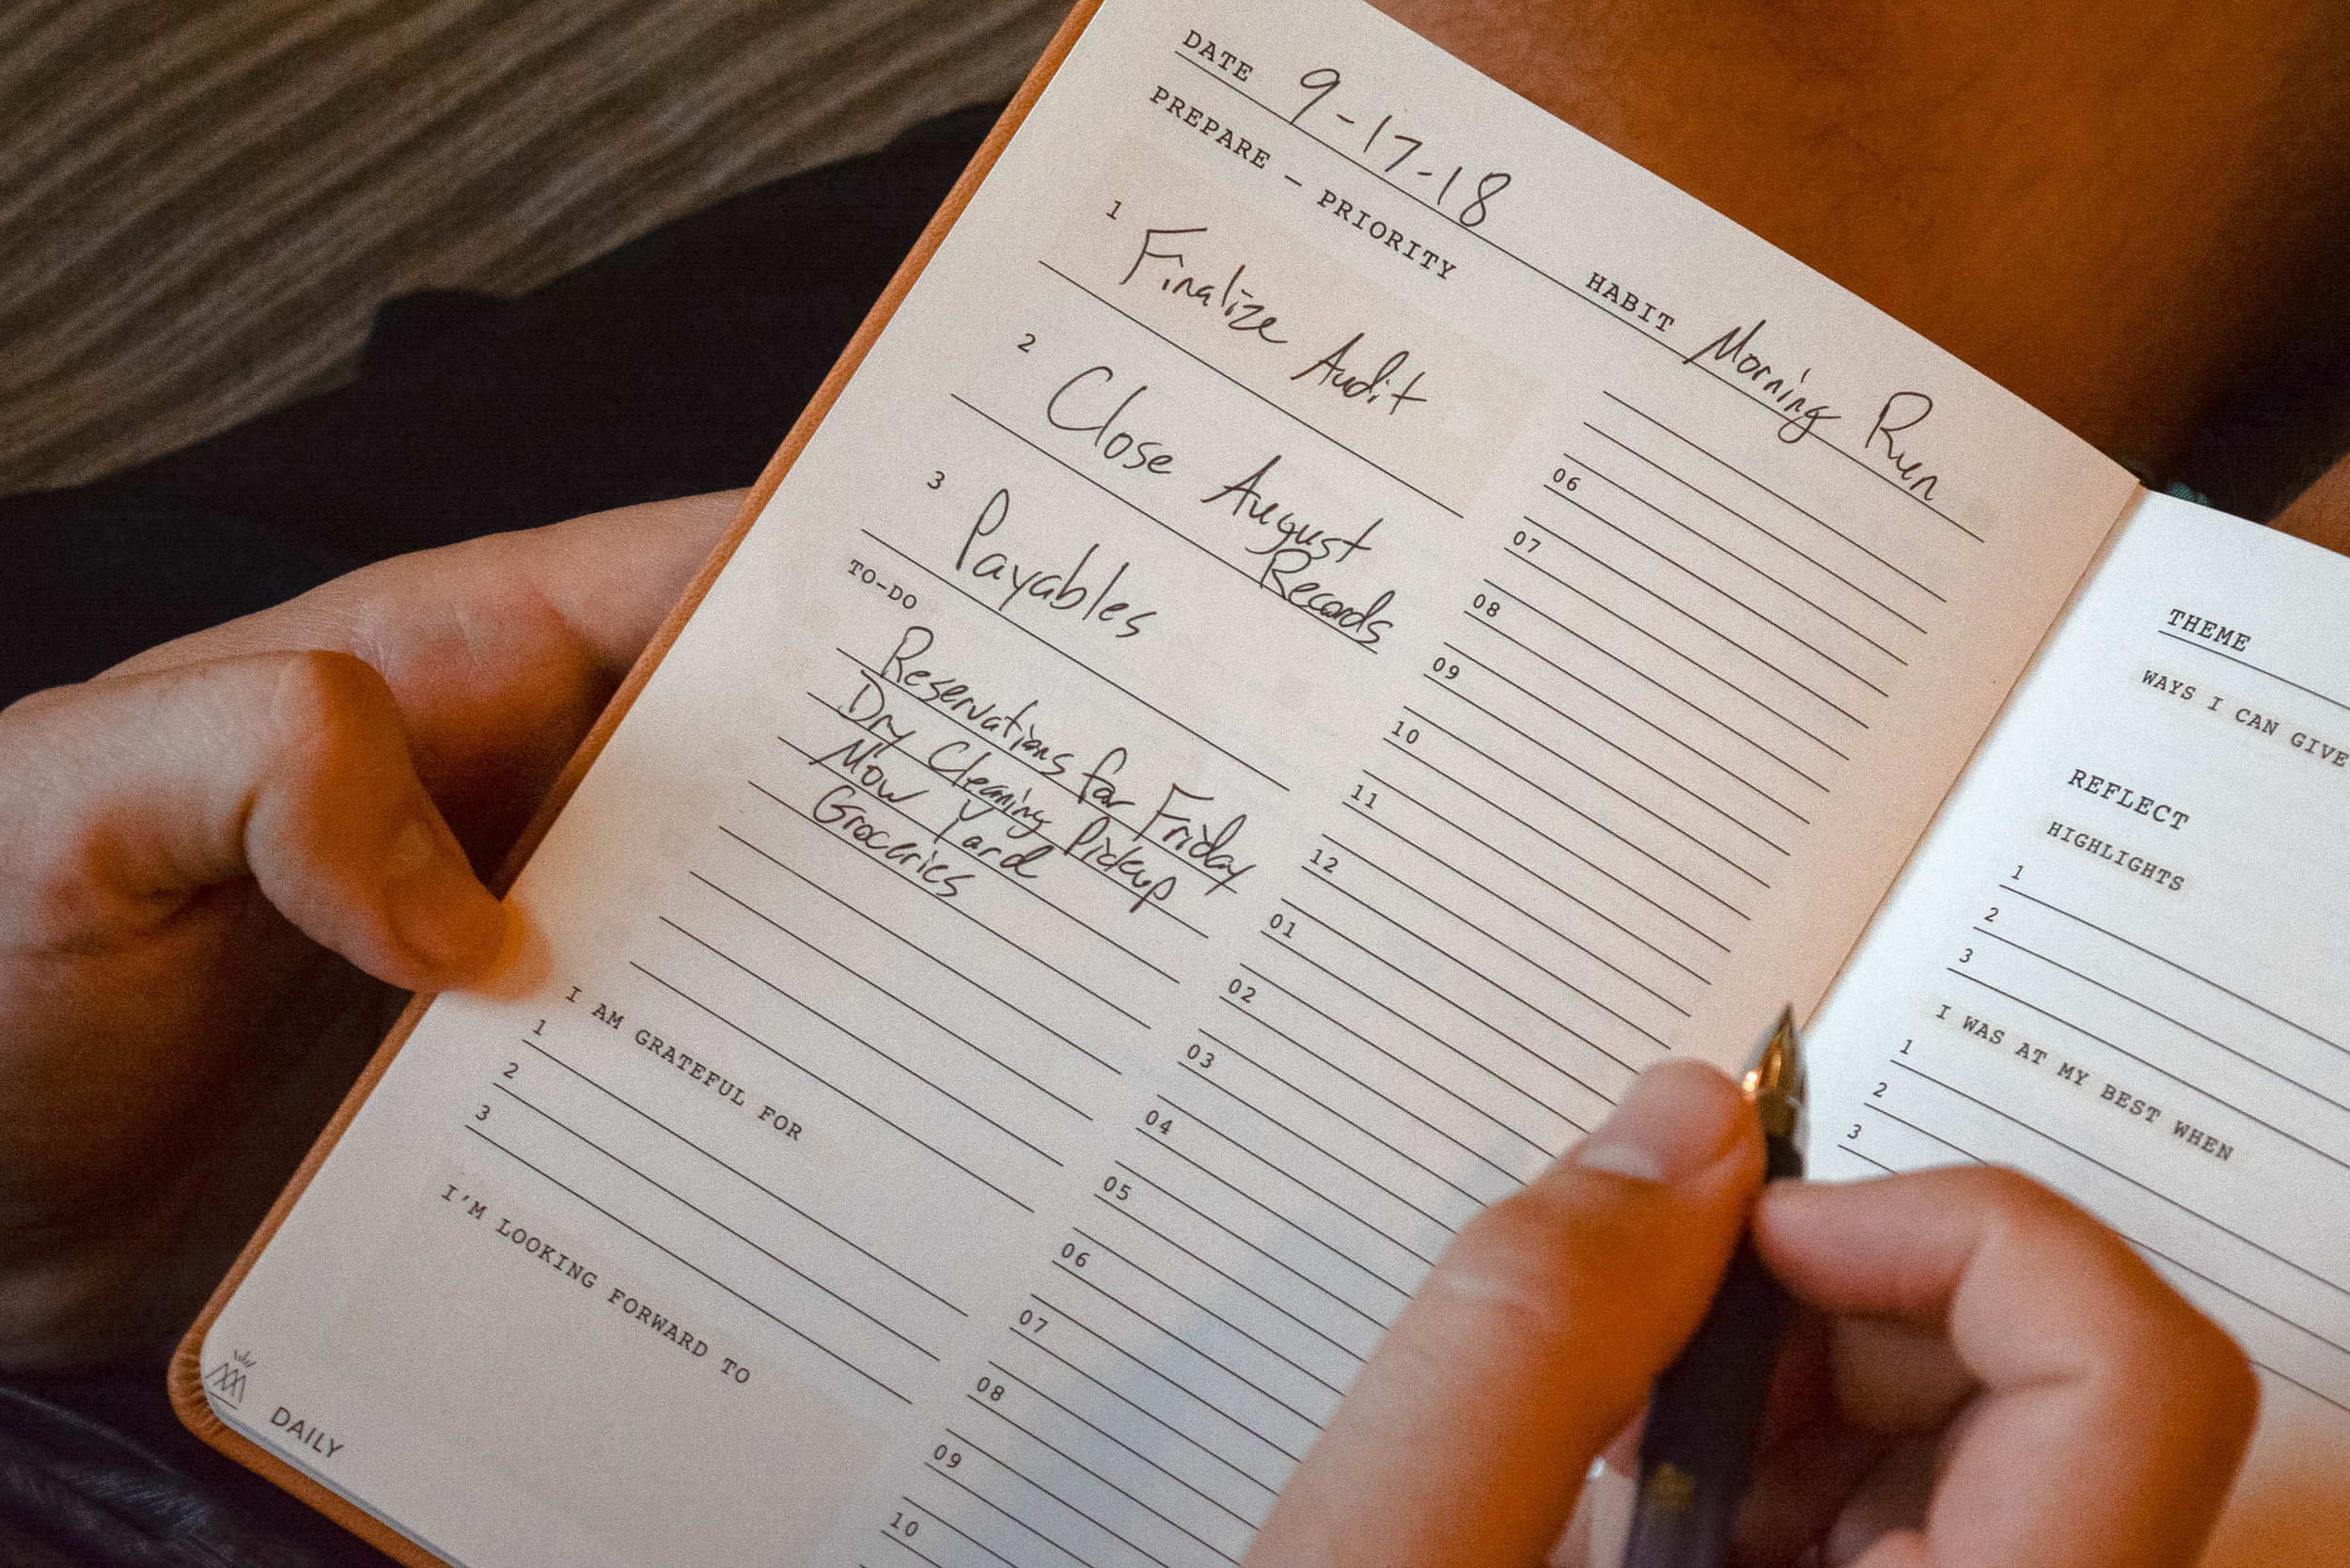 DATE 9-17-18
HABIT Morning Run
PREPARE – PRIORITY
1 Finalize Audit
2 Close August
Records
3 Payables
TO-DO
Reservations for Friday
Dry Cleaning Pickup
Mow Yard
Groceries
I AM GRATEFUL FOR
1
2
3
I'M LOOKING FORWARD TO
DAILY
06
07
08
09
10
11
12
01
02
03
04
05
06
07
08
09
10
THEME
WAYS I CAN GIVE
REFLECT
HIGHLIGHTS
1
2
3
I WAS AT MY BEST WHEN
1
2
3